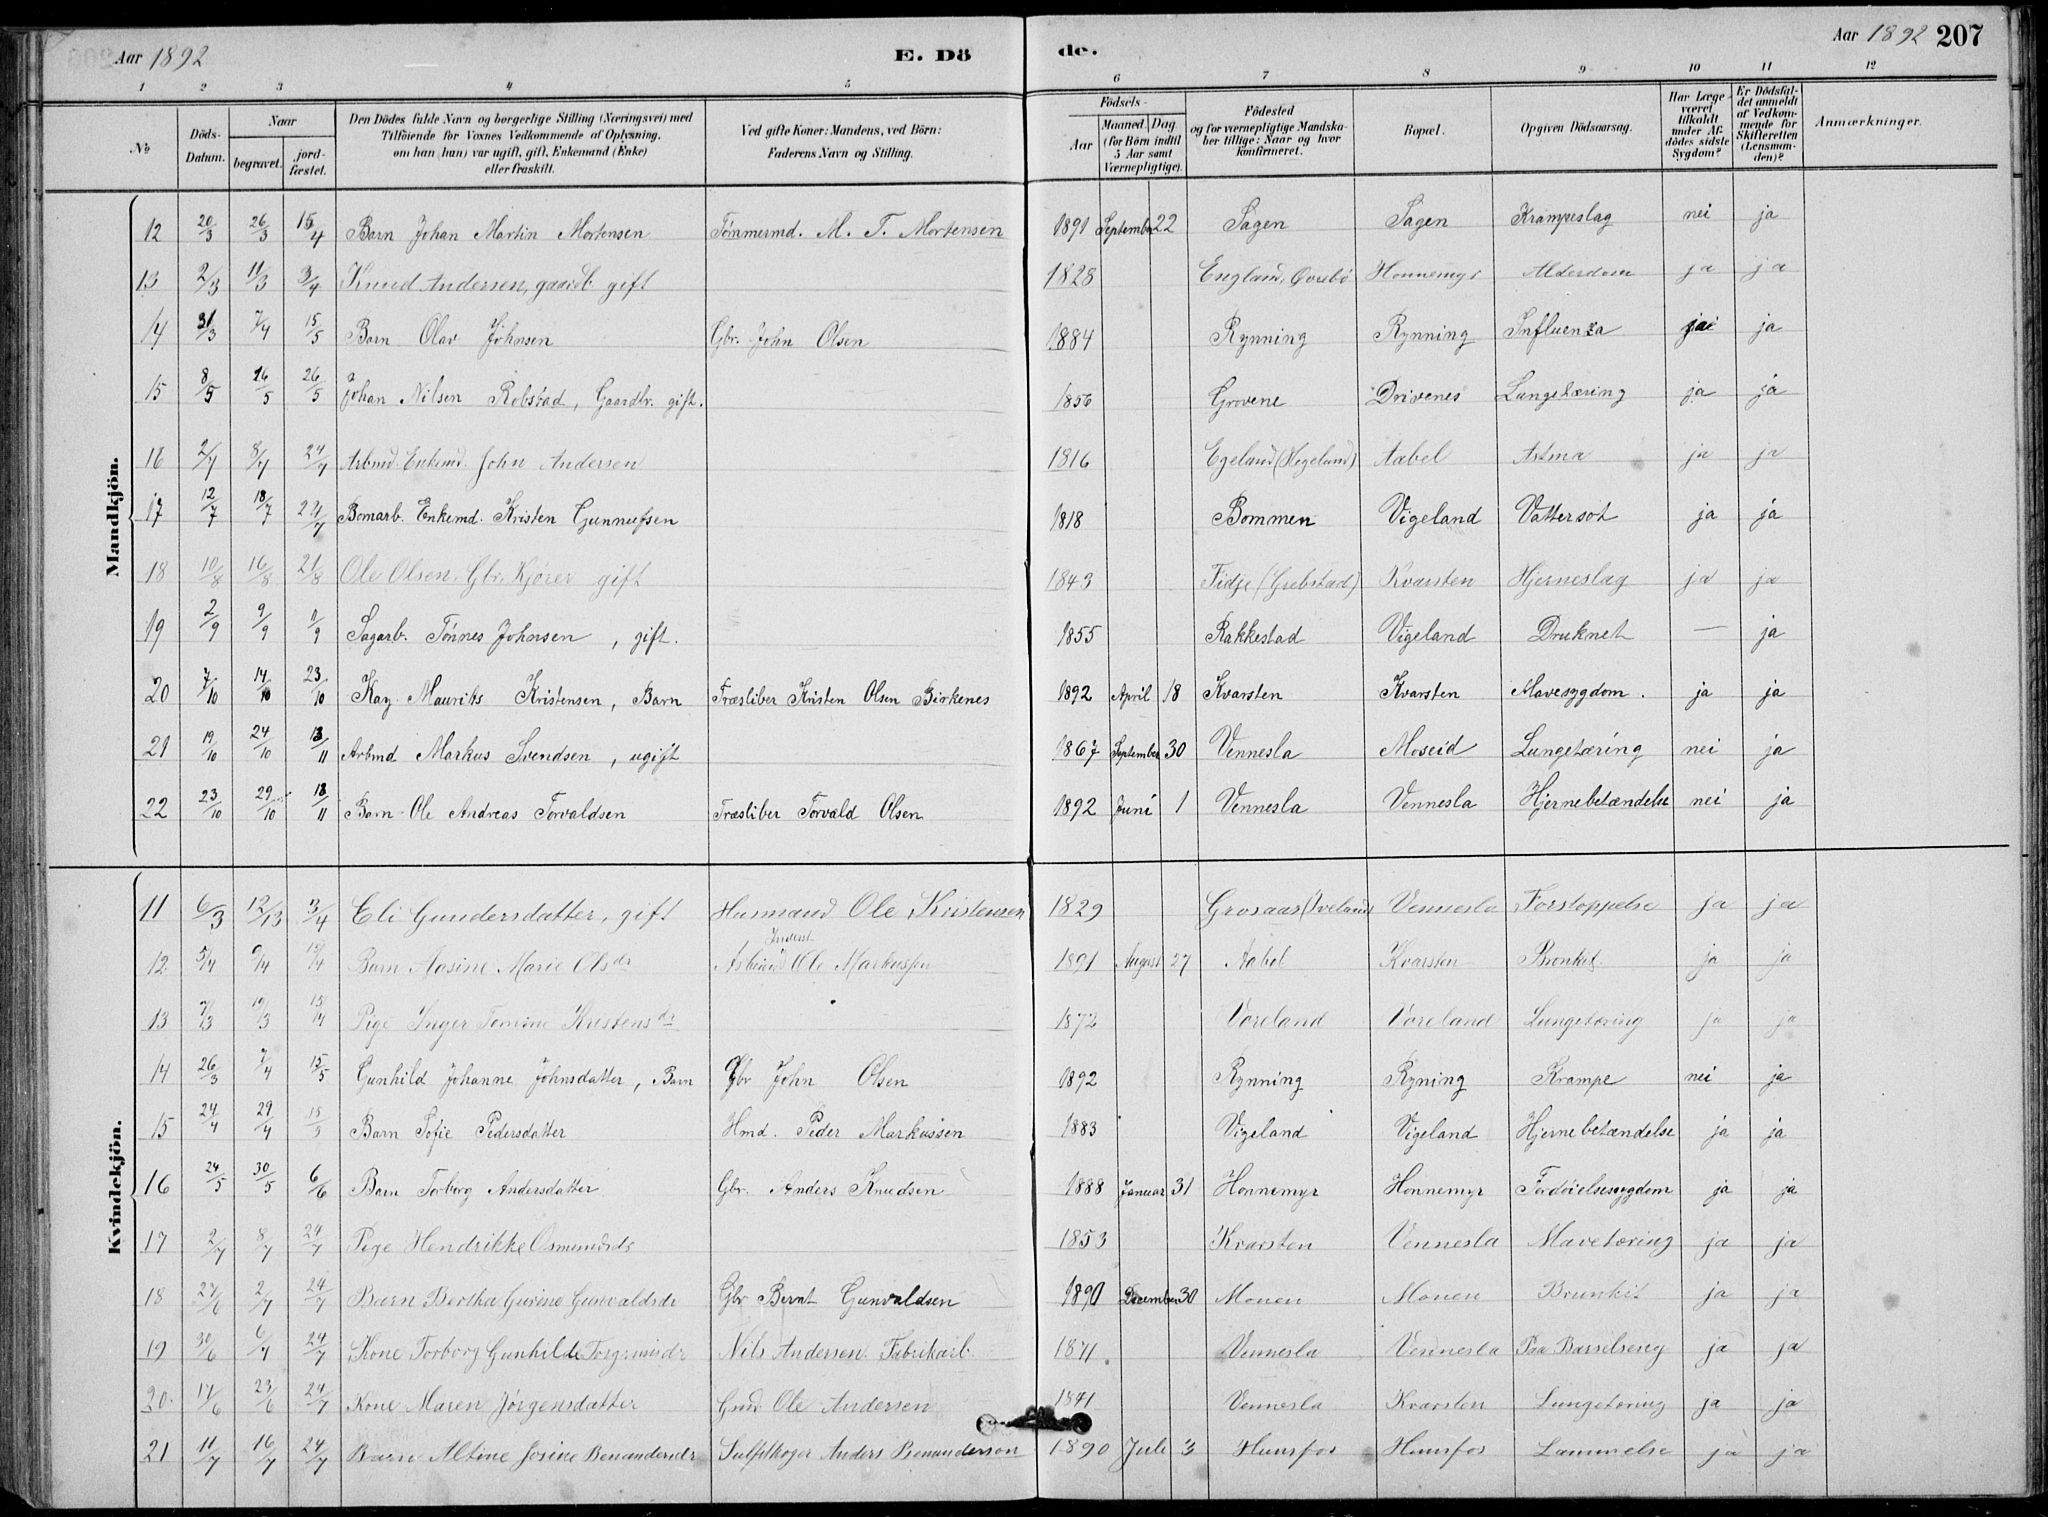 Aar 1892 E. Dö
de. Aar 1892 207
1 2 3 4 5 6 7 8 9 10 11 12
No Döds-Datum. Naar begravet. jordfæstet. Den Dödes fulde Navn og borgerlige Stilling (Næringsvei) med Tilföiende for Voxnes Vedkommende af Oplysning, om han (hun) var ugift, gift, Enkemand (Enke) eller fraskilt. Ved gifte Koner: Mandens, ved Börn: Faderens Navn og Stilling. Födsels- Aar Maaned Dag (for Börn indtil 5 Aar samt Værnepligtige). Födested og for værnepligtige Mandskaber tillige: Naar og hvor konfirmeret. Bopæl. Opgiven Dödsaarsag. Har Læge været tilkaldt under Afdödes sidste Sygdom? Er Dödsfaldet anmeldt af Vedkommende for Skifteretten (Lensmanden)? Anmærkninger.
Mandkjön.
12 20/3 26/3 15/4 Barn Johan Martin Mortensen Tømmermd. M. T. Mortensen 1891 September 22 Sagen Sagen Krampeslag nei ja
13 2/3 11/3 3/4 Knud Andersen, gaardb. gift 1828 England, Øvrebø Honnemyr Alderdom ja ja
14 31/3 7/4 15/5 Barn Olav Johnsen Gbr. John Olsen 1884 Rynning Rynning Influenza ja
15 8/5 16/5 26/5 Johan Nilsen Robstad, Gaardbr. gift. 1856 Grovene Drivenes Lungetæring ja ja
16 2/7 8/7 24/7 Arbmd. Enkemd. John Andersen 1816 Egeland (Hegeland) Aabel Astma ja ja
17 12/7 18/7 24/7 Bomarb. Enkemd. Kristen Gunnufsen 1818 Bommen Vigeland Vattersot ja ja
18 10/8 16/8 21/8 Ole Olsen. Gbr. Kjører gift 1843 Fidje (Grebstad) Kvarsten Hjerneslag ja ja
19 2/9 9/9 11/9 Sagarb. Tönnes Johnsen, gift. 1855 Rakkestad Vigeland Druknet — ja
20 7/10 14/10 23/10 Kay Mauriks Kristensen, Barn Træsliber Kristen Olsen Birkenes 1892 April 18 Kvarsten Kvarsten Mavesygdom. ja ja
21 19/10 24/10 13/11 Arbmd Markus Svendsen, ugift 1867 September 30 Vennesla Moseid Lungetæring nei ja
22 23/10 29/10 13/11 Barn Ole Andreas Torvaldsen Træsliber Torvald Olsen 1892 Juni 1 Vennesla Vennesla Hjernebetændelse nei ja
Kvindekjön.
11 6/3 12/13 3/4 Eli Gundersdatter, gift Husmand Ole Kristensen 1829 Grosaas (Iveland) Vennesla Forstoppelse ja ja
12. 5/4 9/4 15/4 Barn Aasine Marie Olsdr Inderst Arbeimd Ole Markussen 1891 August 27 Aabel Kvarsten Bronkit. ja ja
13 7/13 19/13 15/4 Pige Inger Tomine Kristensdr 1872 Voreland Voreland Lungetæring ja ja
14 26/3 7/4 15/5 Gunhild Johanne Johnsdatter, Barn Gbr John Olsen 1892 Rynning Ryning Krampe nei ja
15 24/4 29/4 15/5 Barn Sofie Pedersdatter Hmd. Peder Markussen 1883 Vigeland Vigeland Hjernebetændelse ja ja
16 24/5 30/5 6/6 Barn Torborg Andersdatter Gbr. Anders Knudsen 1888 Januar 31 Honnemyr Honnemyr Fordøielsessygdom ja ja
17 2/7 8/7 24/7 Pige Hendrikke Osmundsdr 1853 Kvarsten Vennesla Mavetæring ja ja
18 27/6 2/7 24/7 Barn Bertha Gurine Gunvaldsdr Gbr Bernt Gunvaldsen 1890 December 30 Monen Monen Brunkit ja ja
19 30/6 6/7 24/7 Kone Torborg Gunhilde Torgrimsdr Nils Andersen. Fabrikarb. 1871 Vennesla Vennesla Paa Barselseng ja ja
20. 17/6 23/6 24/7 Kone Maren Jørgensdatter Gmd Ole Andersen 1841 Vennesla Kvarsten Lungetæring ja ja
21 11/7 16/7 24/7 Barn Altine Josine Benandersdr Sulfitkoger Anders Bennanderson 1890 Juli 3 Hunsfos Hunsfos Lammelse ja ja